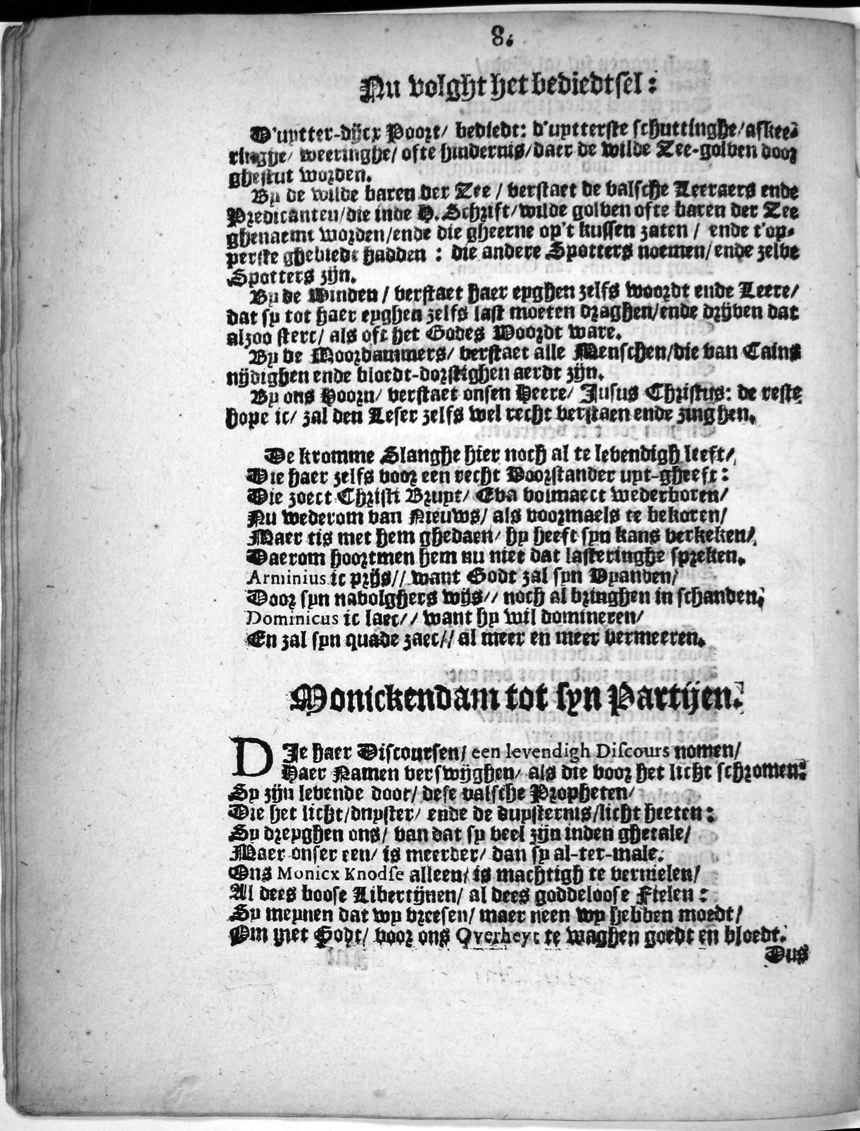 8.
Nu volght het bediedtsel:
D'uytter-dijcx Poort/ bediedt: d'uytterste schuttinghe/afkee-
ringhe/ weeringhe/ ofte hindernis/daer de wilde Zee-golven door
ghestut worden.
By de wilde baren der Zee / verstaet de valsche Leeraers ende
Predicanten/die inde H. Schrift/wilde golven ofte baren der Zee
ghenaemt worden/ende die gheerne op't kussen zaten / ende t'op-
perste ghebiedt hadden : die andere Spotters noemen/ende zelve
Spotters zijn.
By de Winden / verstaet haer eyghen zelfs woordt ende Leere/
dat sy tot haer eyghen zelfs last moeten draghen/ende drijven dat
alzoo sterc/ als oft het Godes Woordt ware.
By de Moordammers/ verstaet alle Menschen/die van Cains
nijdighen ende bloedt-dorstighen aerdt zijn.
By ons Hoorn/ verstaet onsen Heere/ Jusus Christus: de reste
hope ic/ zal den Leser zelfs wel recht verstaen ende zinghen.
De kromme Slanghe hier noch al te levendigh leeft/
Die haer zelfs voor een recht Voorstander uyt-gheeft:
Die zoect Christi Bruyt/ Eva volmaect wederboren/
Nu wederom van Nieuws/ als voormaels te bekoren/
Maer tis met hem ghedaen/ hy heeft syn kans verkeken/
Daerom hoortmen hem nu niet dat lasteringhe spreken.
Arminius ic prijs// want Godt zal syn Vyanden/
Door syn navolghers wijs// noch al bringhen in schanden.
Dominicus ic laec// want hy wil domineren/
En zal syn quade zaec// al meer en meer vermeeren.
Monickendam tot syn Partijen.
DIe haer Discoursen/ een levendigh Discours nomen/
Haer Namen verswijghen/ als die voor het licht schromen:
Sy zijn levende doot/ dese valsche Propheten/
Die het licht/duyster/ ende de duysternis/licht heeten:
Sy dreyghen ons/ van dat sy veel zijn inden ghetale/
Maer onser een/ is meerder/ dan sy al-ter-male.
Ons Monicx Knodse alleen/ is machtigh te vernielen/
Al dees boose Libertijnen/ al dees goddeloose Fielen :
Sy meynen dat wy vreesen/ maer neen wy hebben moedt/
Om met Godt/ voor ons Overheyt te waghen goedt en bloedt.
Dus